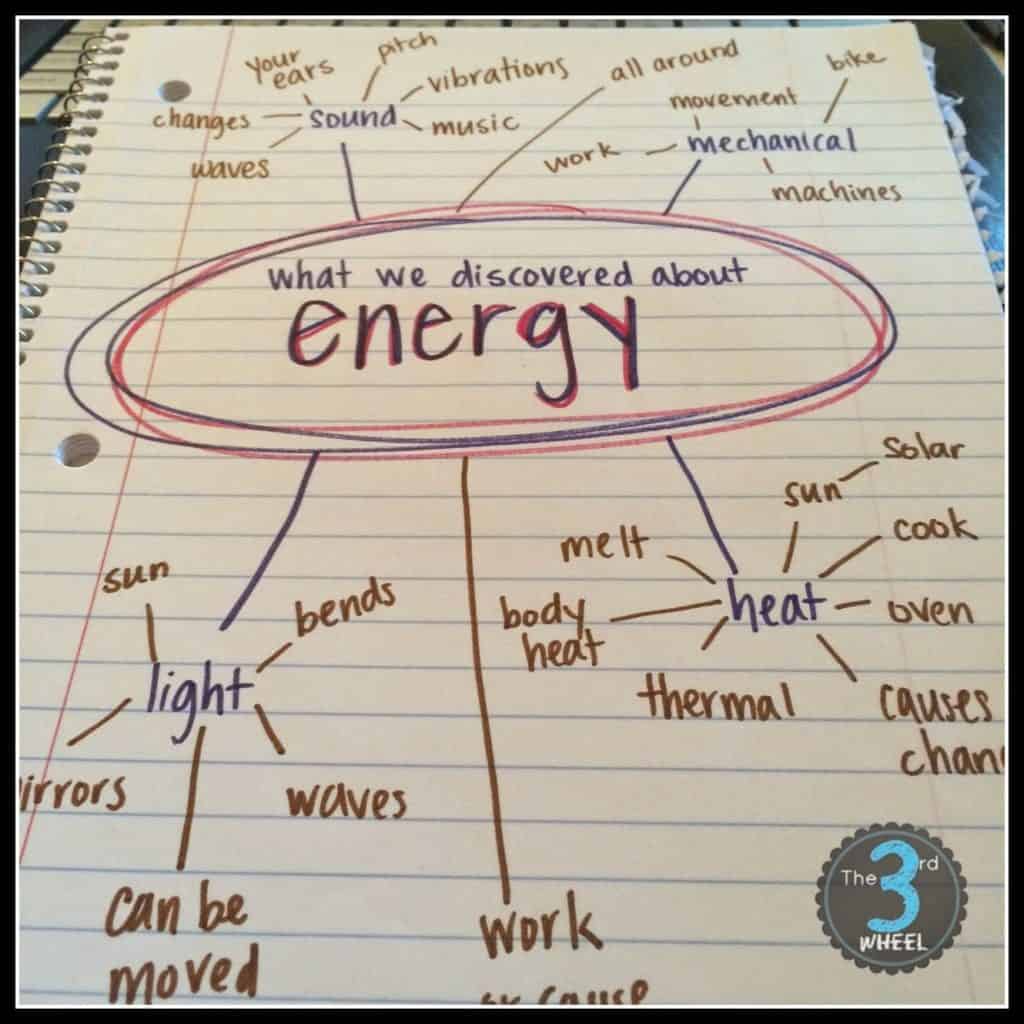 your
ears
pitch
vibrations
changes
sound
music
waves
all around
bike
movement
work
mechanical
machines
what we discovered about
energy
sun
bends
light
irrors
waves
can be
moved
work
or cause
solar
sun
cook
melt
heat
oven
body
heat
thermal
causes
chan
The 3rd
WHEEL